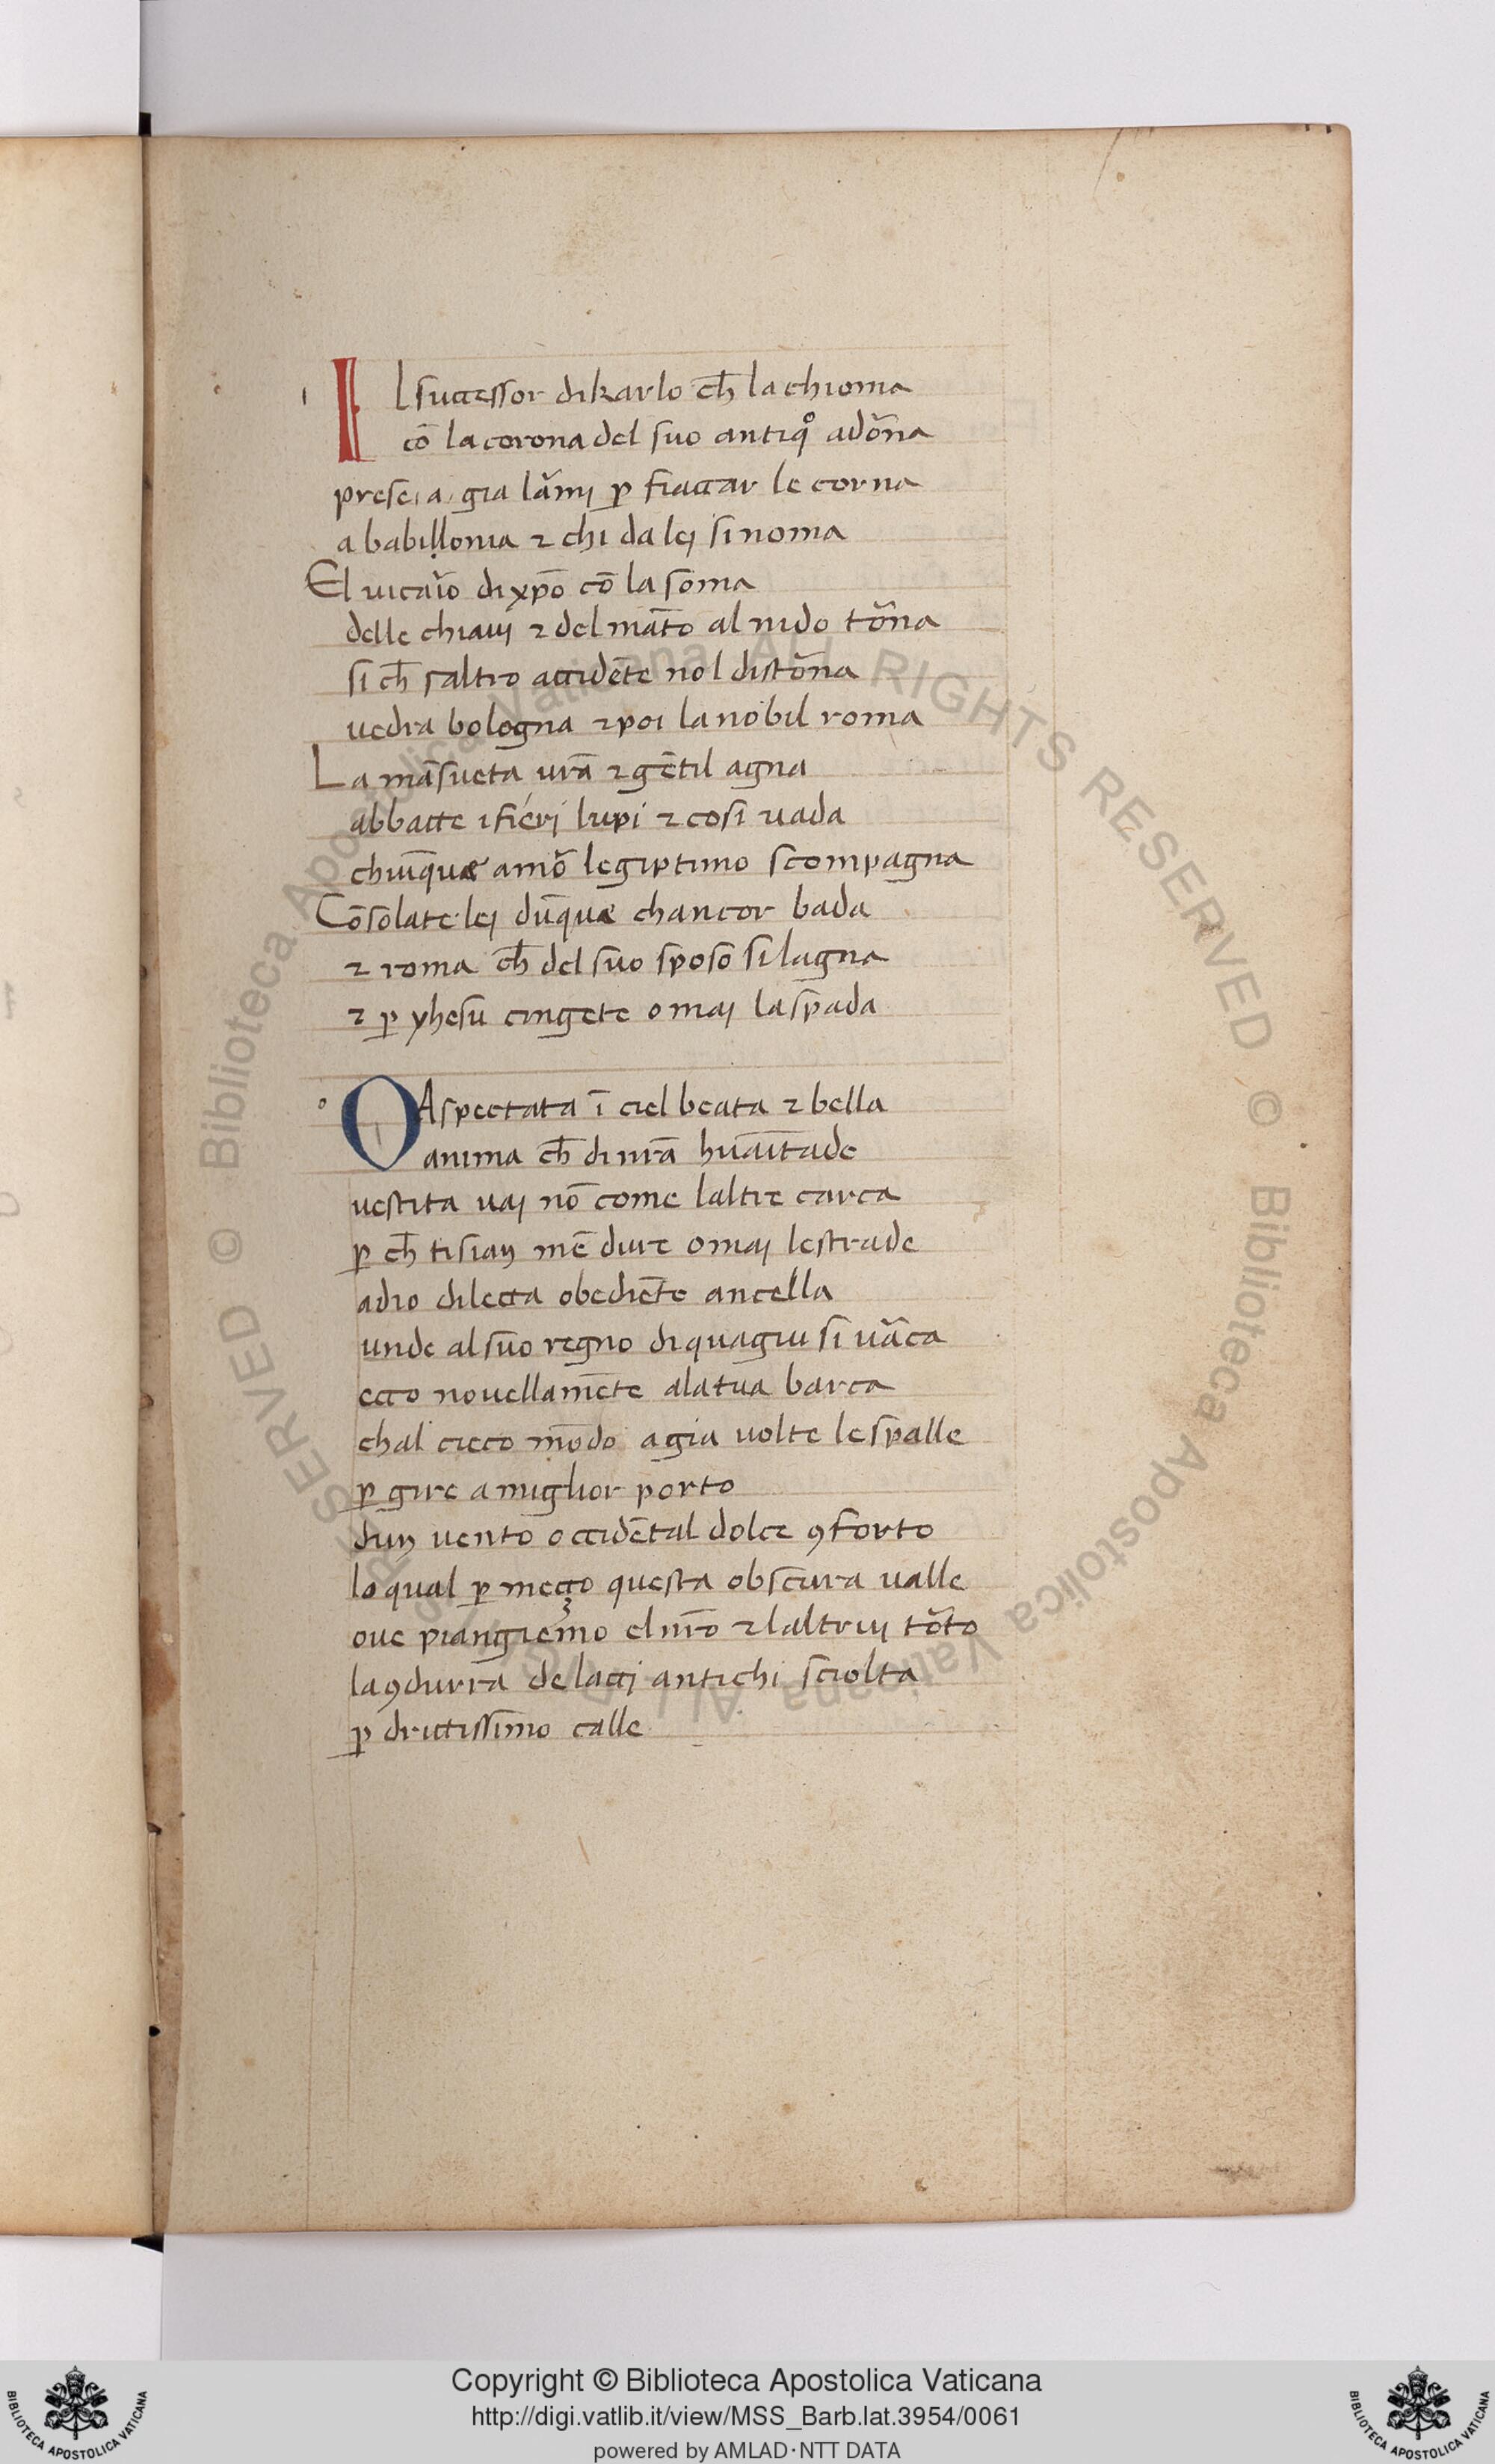 I Lsuccessor dikarlo ch̄ lachioma
cō lacorona del suo antiqͦ adōna
presei a gia lāmj ꝑ fiaccar le corna
a babillonia ⁊ chi da lej sinoma
El uicaīo di xp̄o cō la soma
delle chiauj ⁊ del māto al nido tōna
si ch̄ saltro accidēte nol distōna
uedra bologna ⁊ poi la nobil roma
La māsueta urā ⁊ gētil agna
abbatte i fierj lupi ⁊ cosi uada
chiūque amō legiptimo scompagna
Cōsolate lej dūque chancor bada
⁊ roma ch̄ del suo sposo silagna
⁊ ꝑ yhesu cingete omaj laspada
O Aspectata ī ciel beata ⁊ bella
anima ch̄ di nrā huāitade
uestita uaj nō come laltre carca
ꝑ ch̄ tisian mē dure omaj lestrade
adio dilecta obediēte ancella
unde al suo regno di quagiu si uāca
ecco nouellamēte alatua barca
chal cieco mōdo a gia uolte le spalle
ꝑ gire a miglior porto
dun uento occidētal dolce ꝯforto
lo qual ꝑ mecco questa obscura ualle
oue piangiemo el nrō ⁊ laltruj tōto
la ꝯdurra de laccj antichi sciolta
ꝑ drictissimo calle
Copyright © Biblioteca Apostolica Vaticana
http://digi.vatlib.it/view/MSS_Barb.lat.3954/0061
powered by AMLAD·NTT DATA
BIBLIOTECA APOSTOLICA VATICANA
BIBLIOTECA APOSTOLICA VATICANA
© Biblioteca Apostolica Vaticana ALL RIGHTS RESERVED © Biblioteca Apostolica Vaticana ALL RIGHTS RESERVED